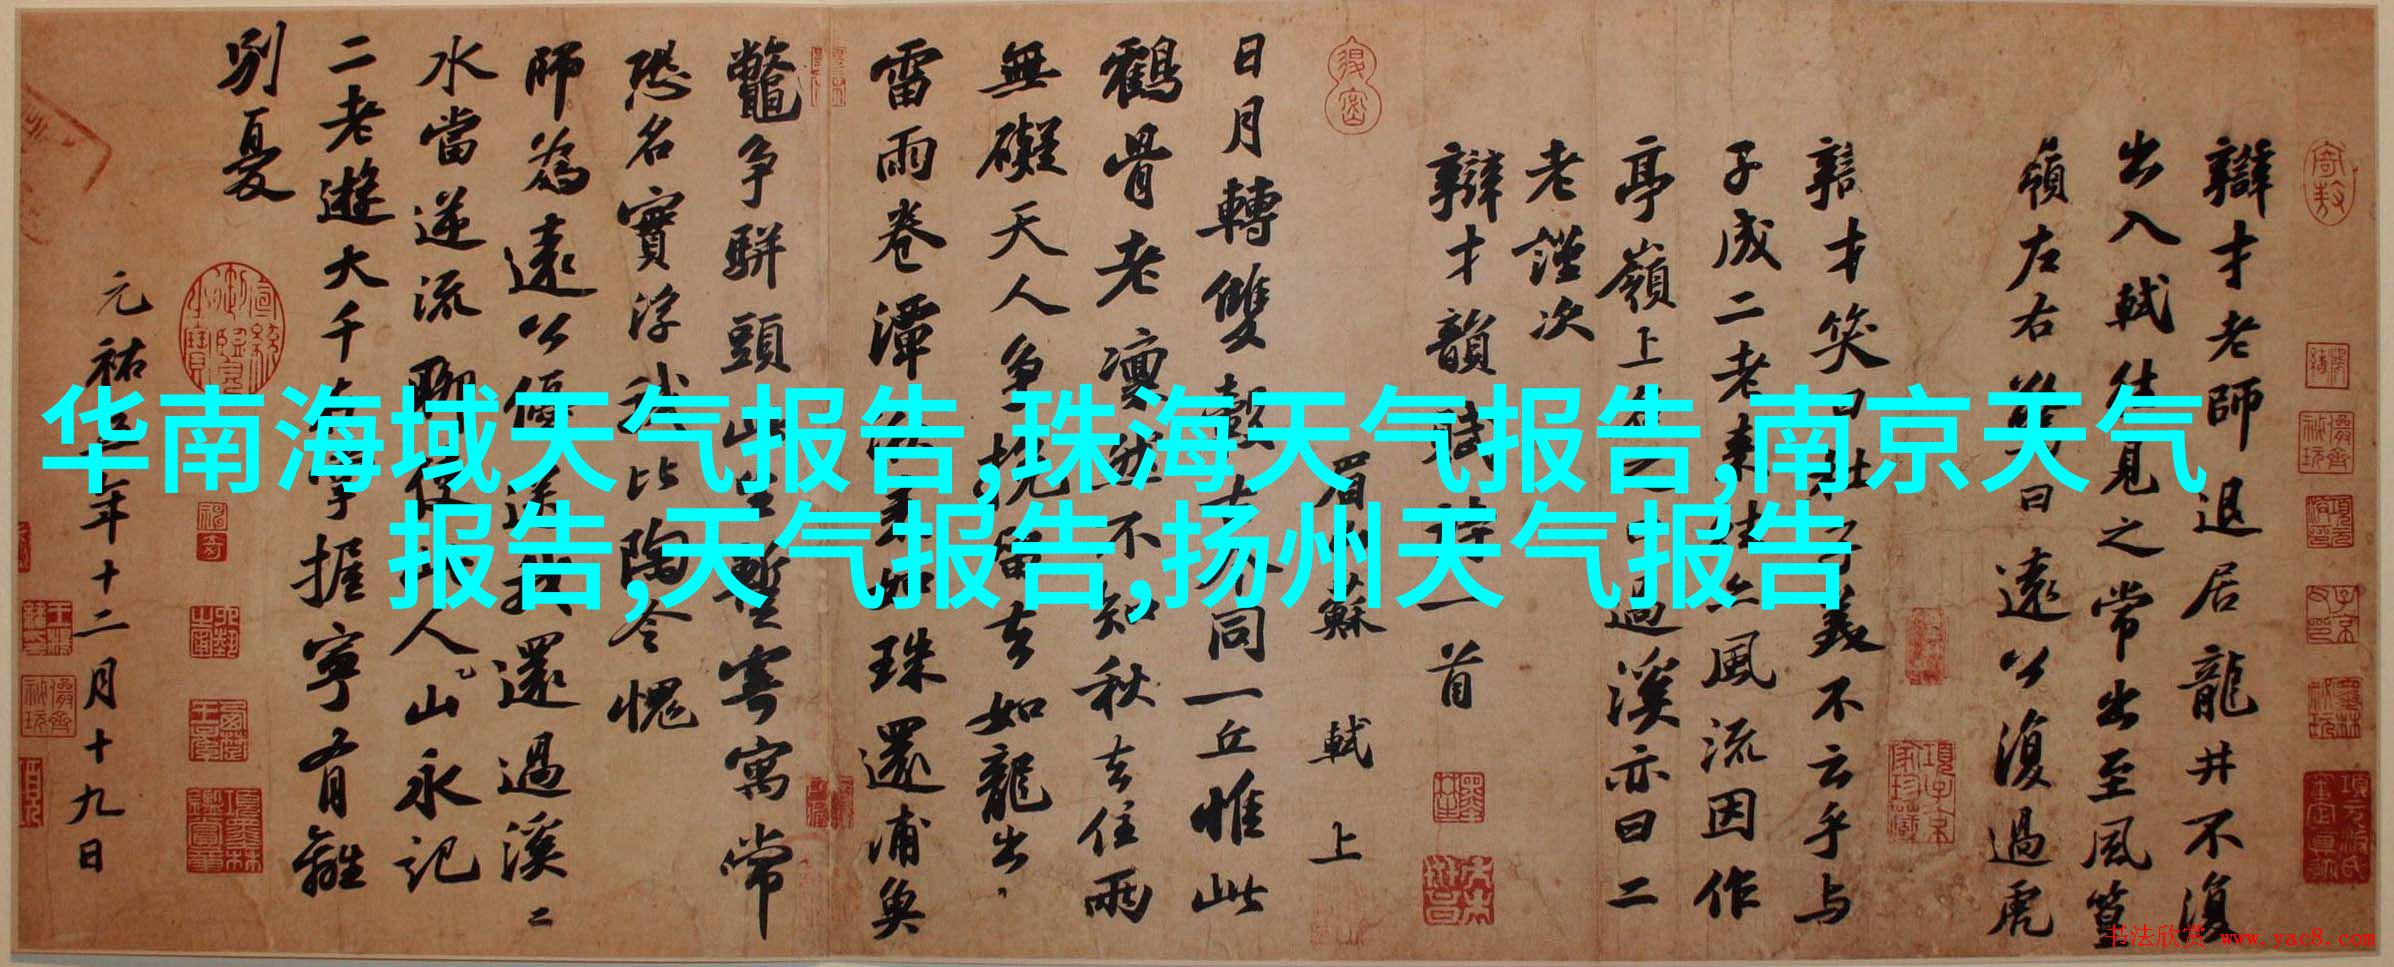 辯才老師退居龍井不復
出入軾往見之常出至風篁
嶺左右驚曰遠公復過虎
辯才笑曰杜子美不云乎與
子成二老來往亦風流因作
亭嶺上名曰過溪亦曰二
老謹次
辯才韻賦詩一首
眉山蘇軾上
日月轉雙轂古今同一丘惟此
鶴骨老凛然不知秋去住兩
無礙天人爭挽留去如龍出
雷雨卷潭湫來如珠還浦魚
鼈爭駢頭此生暫寄寓常
恐名實浮我比陶令愧
師為遠公優送我還過溪〻
水當逆流聊使此人山永記
二老遊大千在掌握寧有離
別憂
元祐五年十二月十九日
华南海域天气报告,珠海天气报告,南京天气
报告,天气报告,扬州天气报告
书法欣赏 www.yac8.com